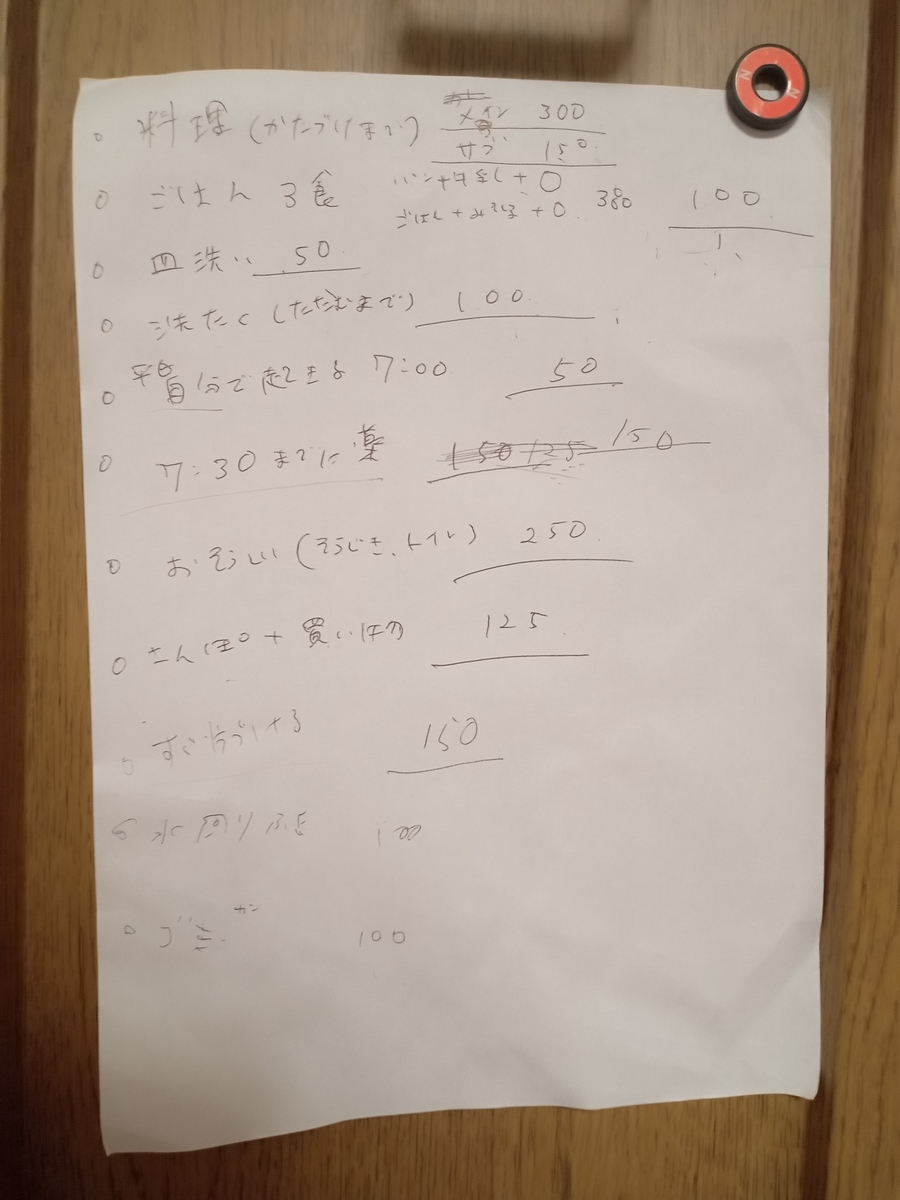 料理(かたづけまで) メイン 300
サブ 150
ごはん 3食 +0 380 100
ごはん+みそしる +0
皿洗い 50
洗たく(たたむまで) 100
平日 自分で起きる 7:00 50
7:30までに薬 150 125 150
おそうじ(そうじき、トイレ) 250
さんぽ + 買いもの 125
すぐ 150
水回りふき 100
ゴミ 100